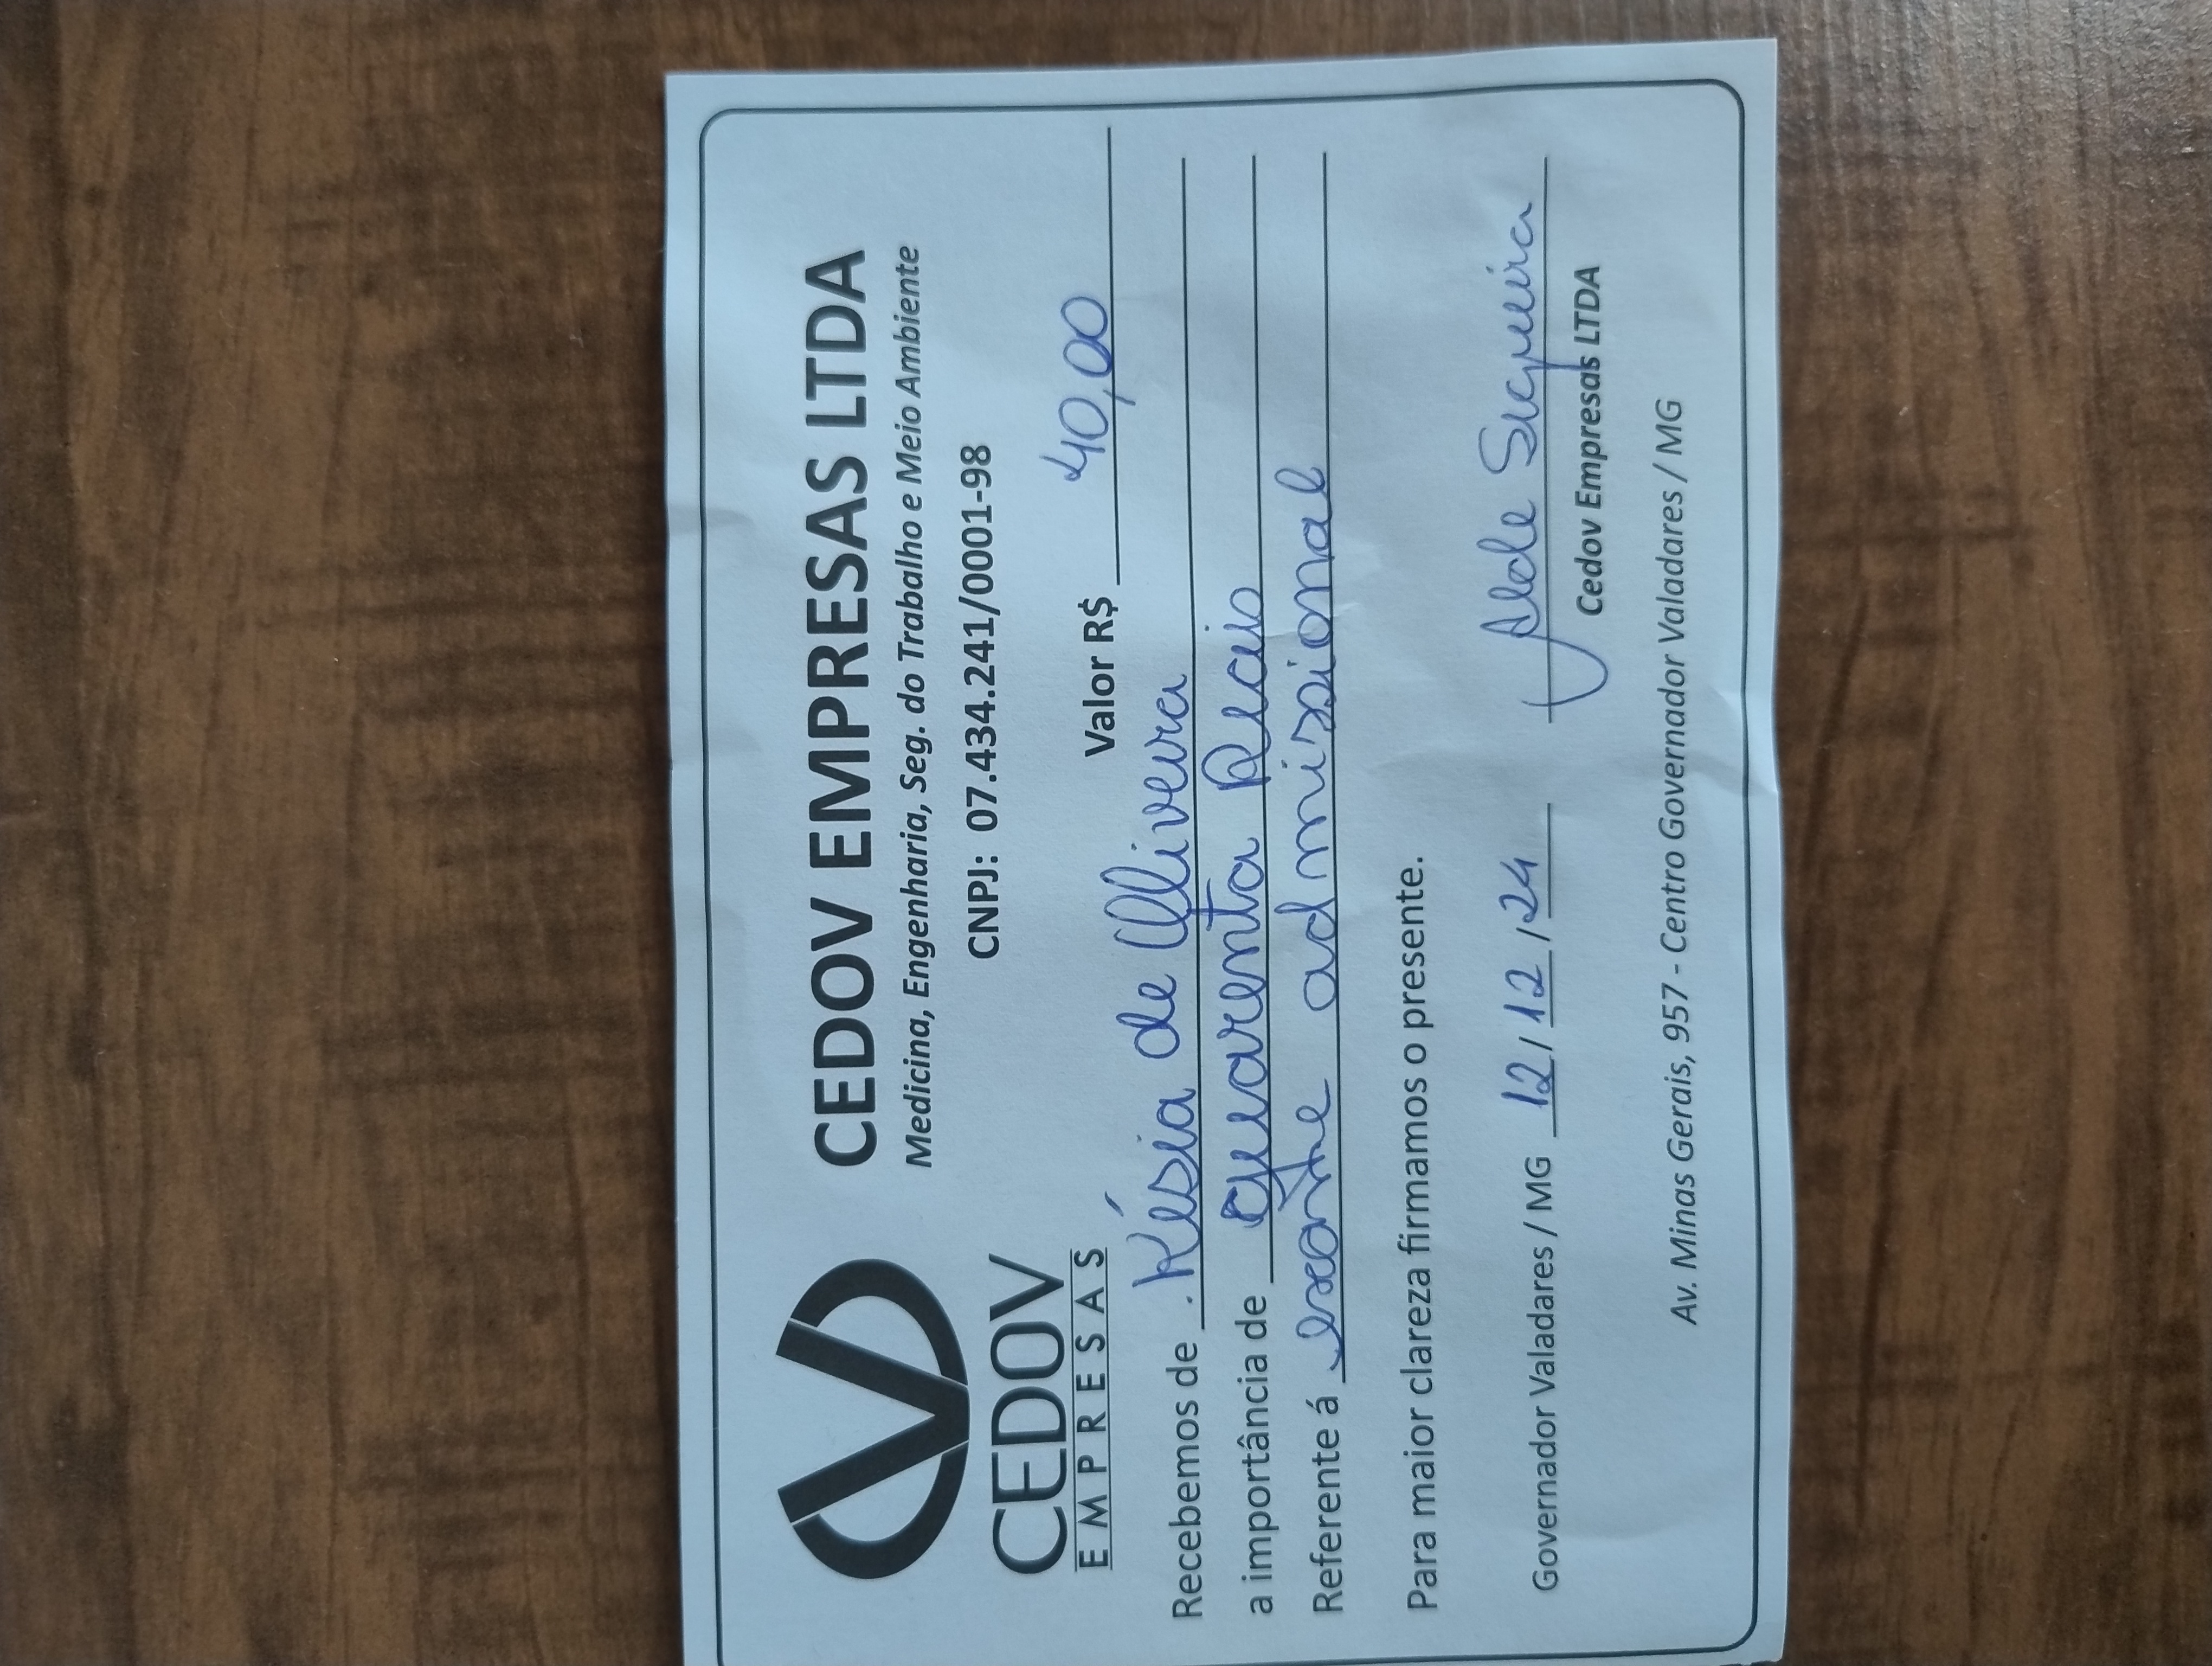 CEDOV EMPRESAS LTDA
Medicina, Engenharia, Seg. do Trabalho e Meio Ambiente
CNPJ: 07.434.241/0001-98
CEDOV
EMPRESAS
Valor R$ 40,00
Recebemos de Késia de Oliveira
a importância de quarenta Reais
Referente á exame admissional
Para maior clareza firmamos o presente.
Governador Valadares / MG 12/12/24 Siqueira
Cedov Empresas LTDA
Av. Minas Gerais, 957 - Centro Governador Valadares / MG